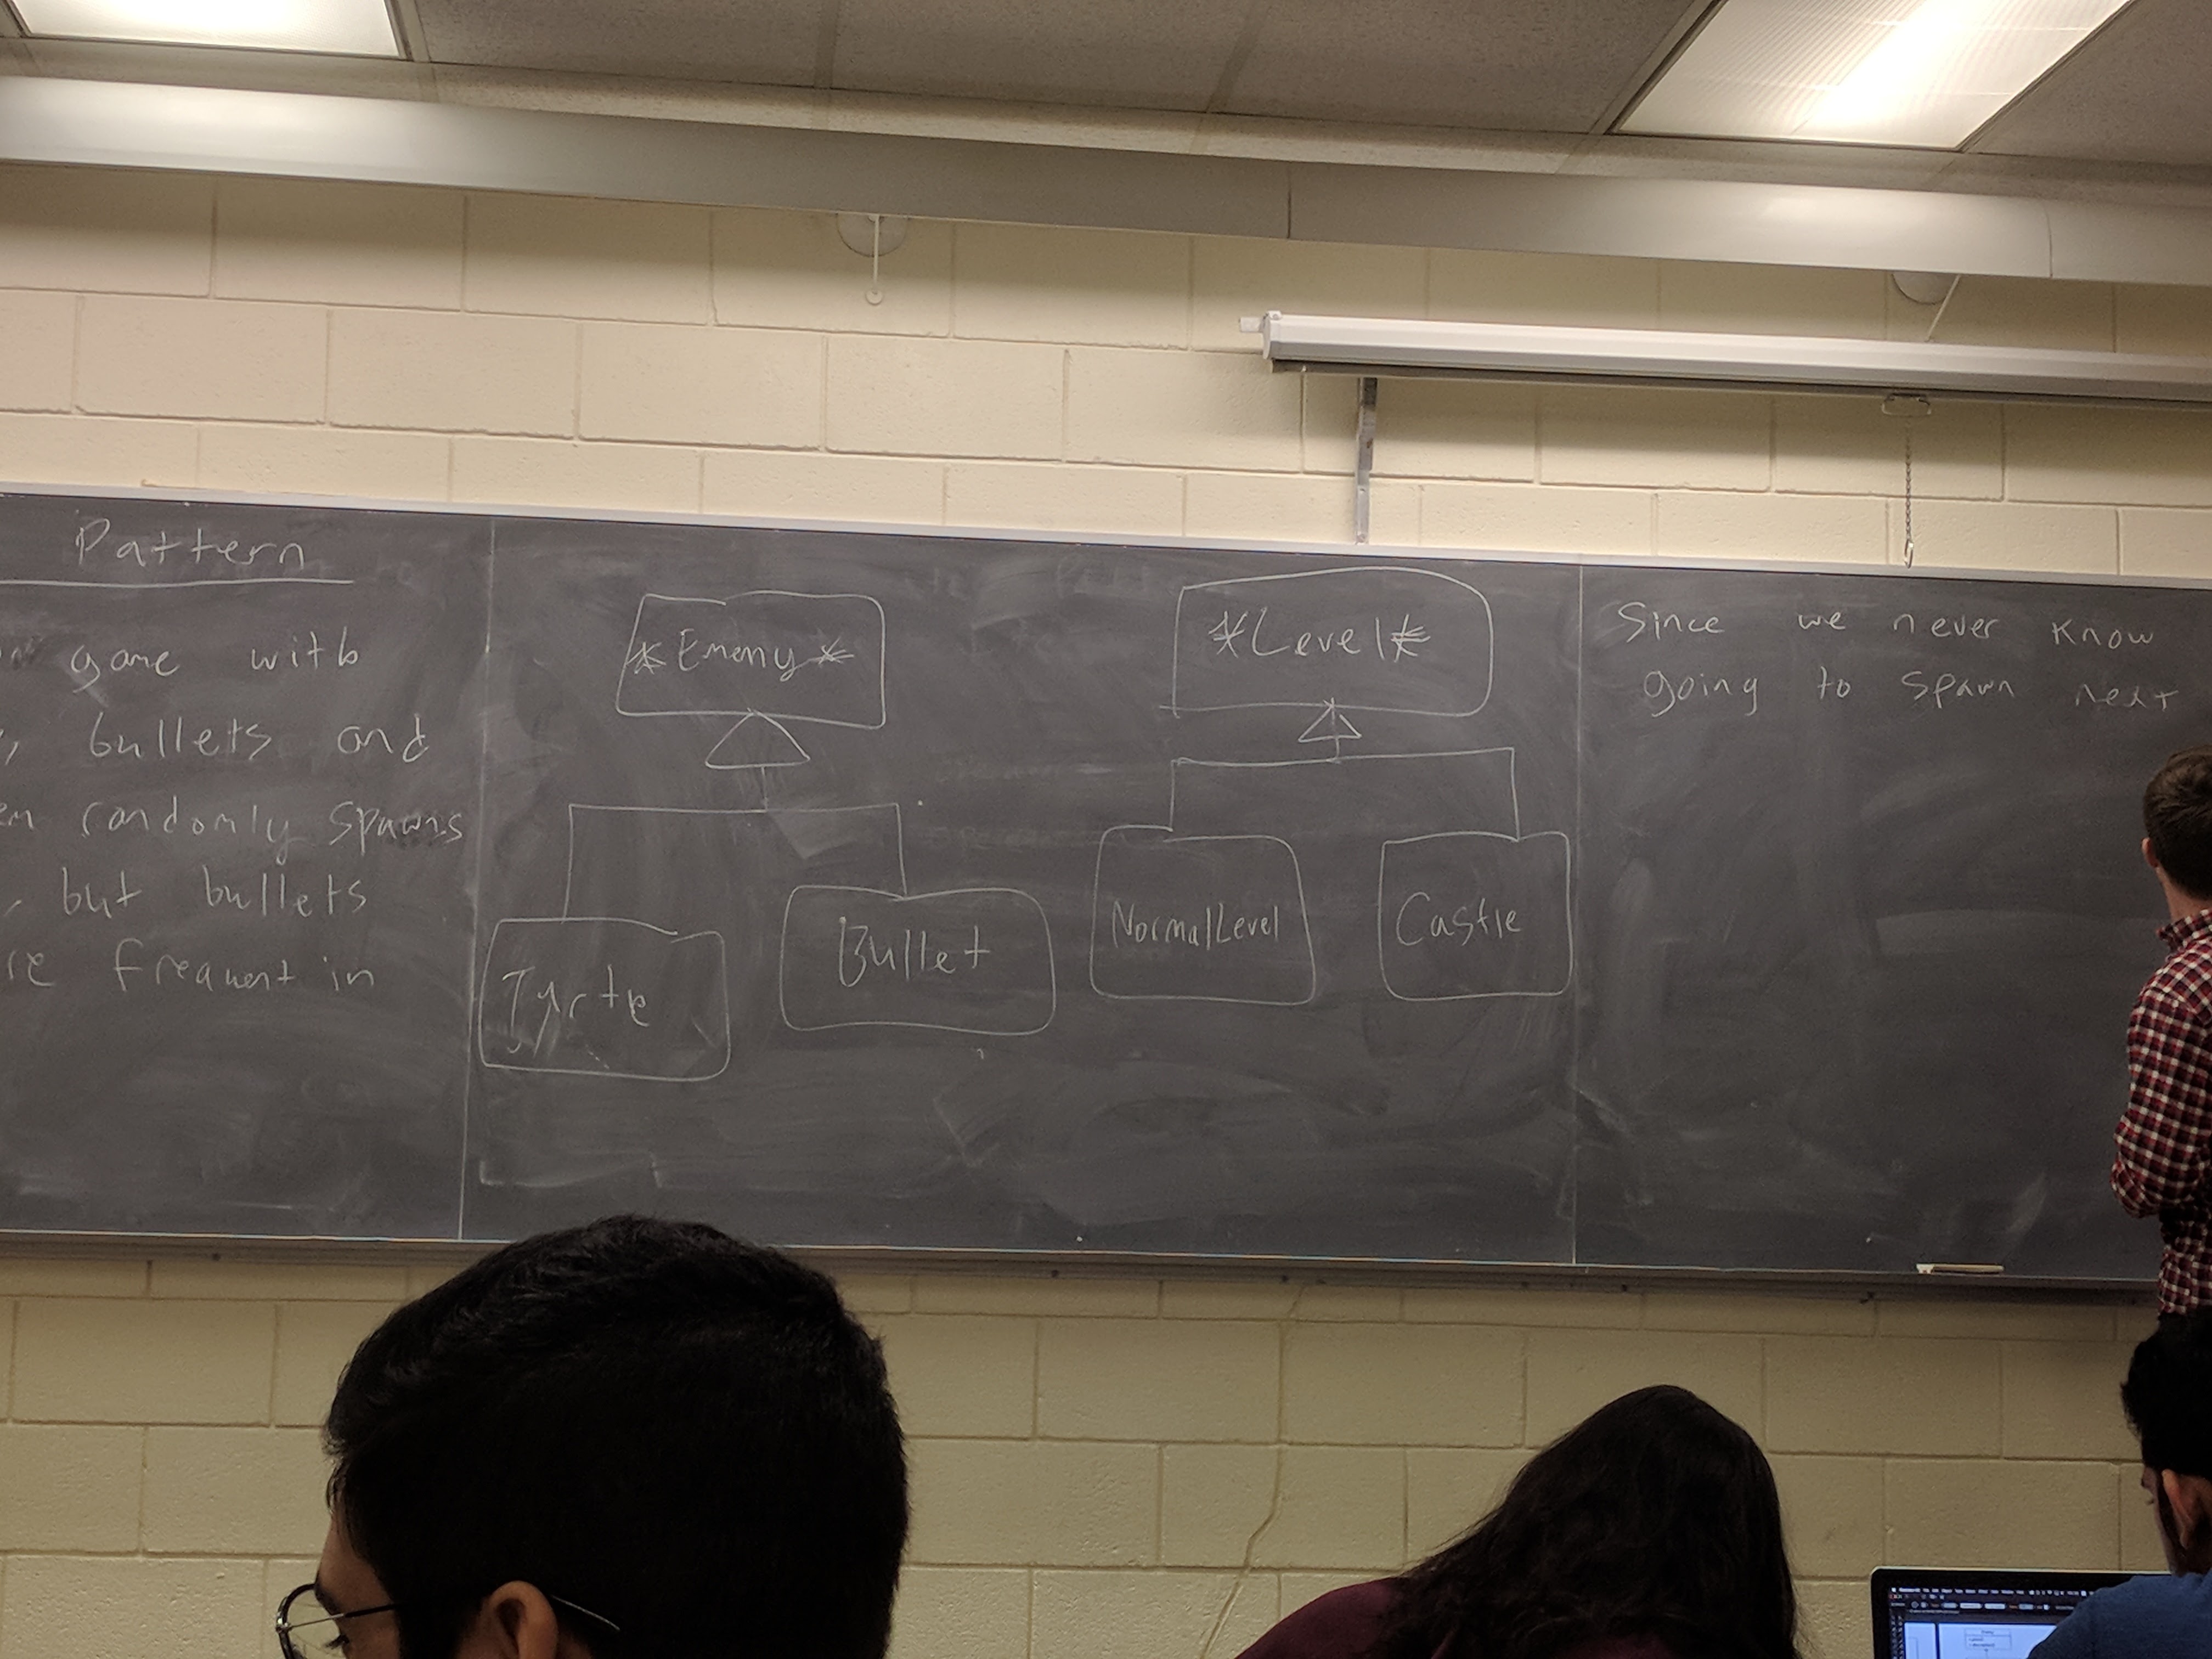 Pattern
game with
, bullets and
randomly spawns
, but bullets
frequent in
*Enemy*
Turtle
Bullet
*Level*
NormalLevel
Castle
Since we never know
going to spawn next